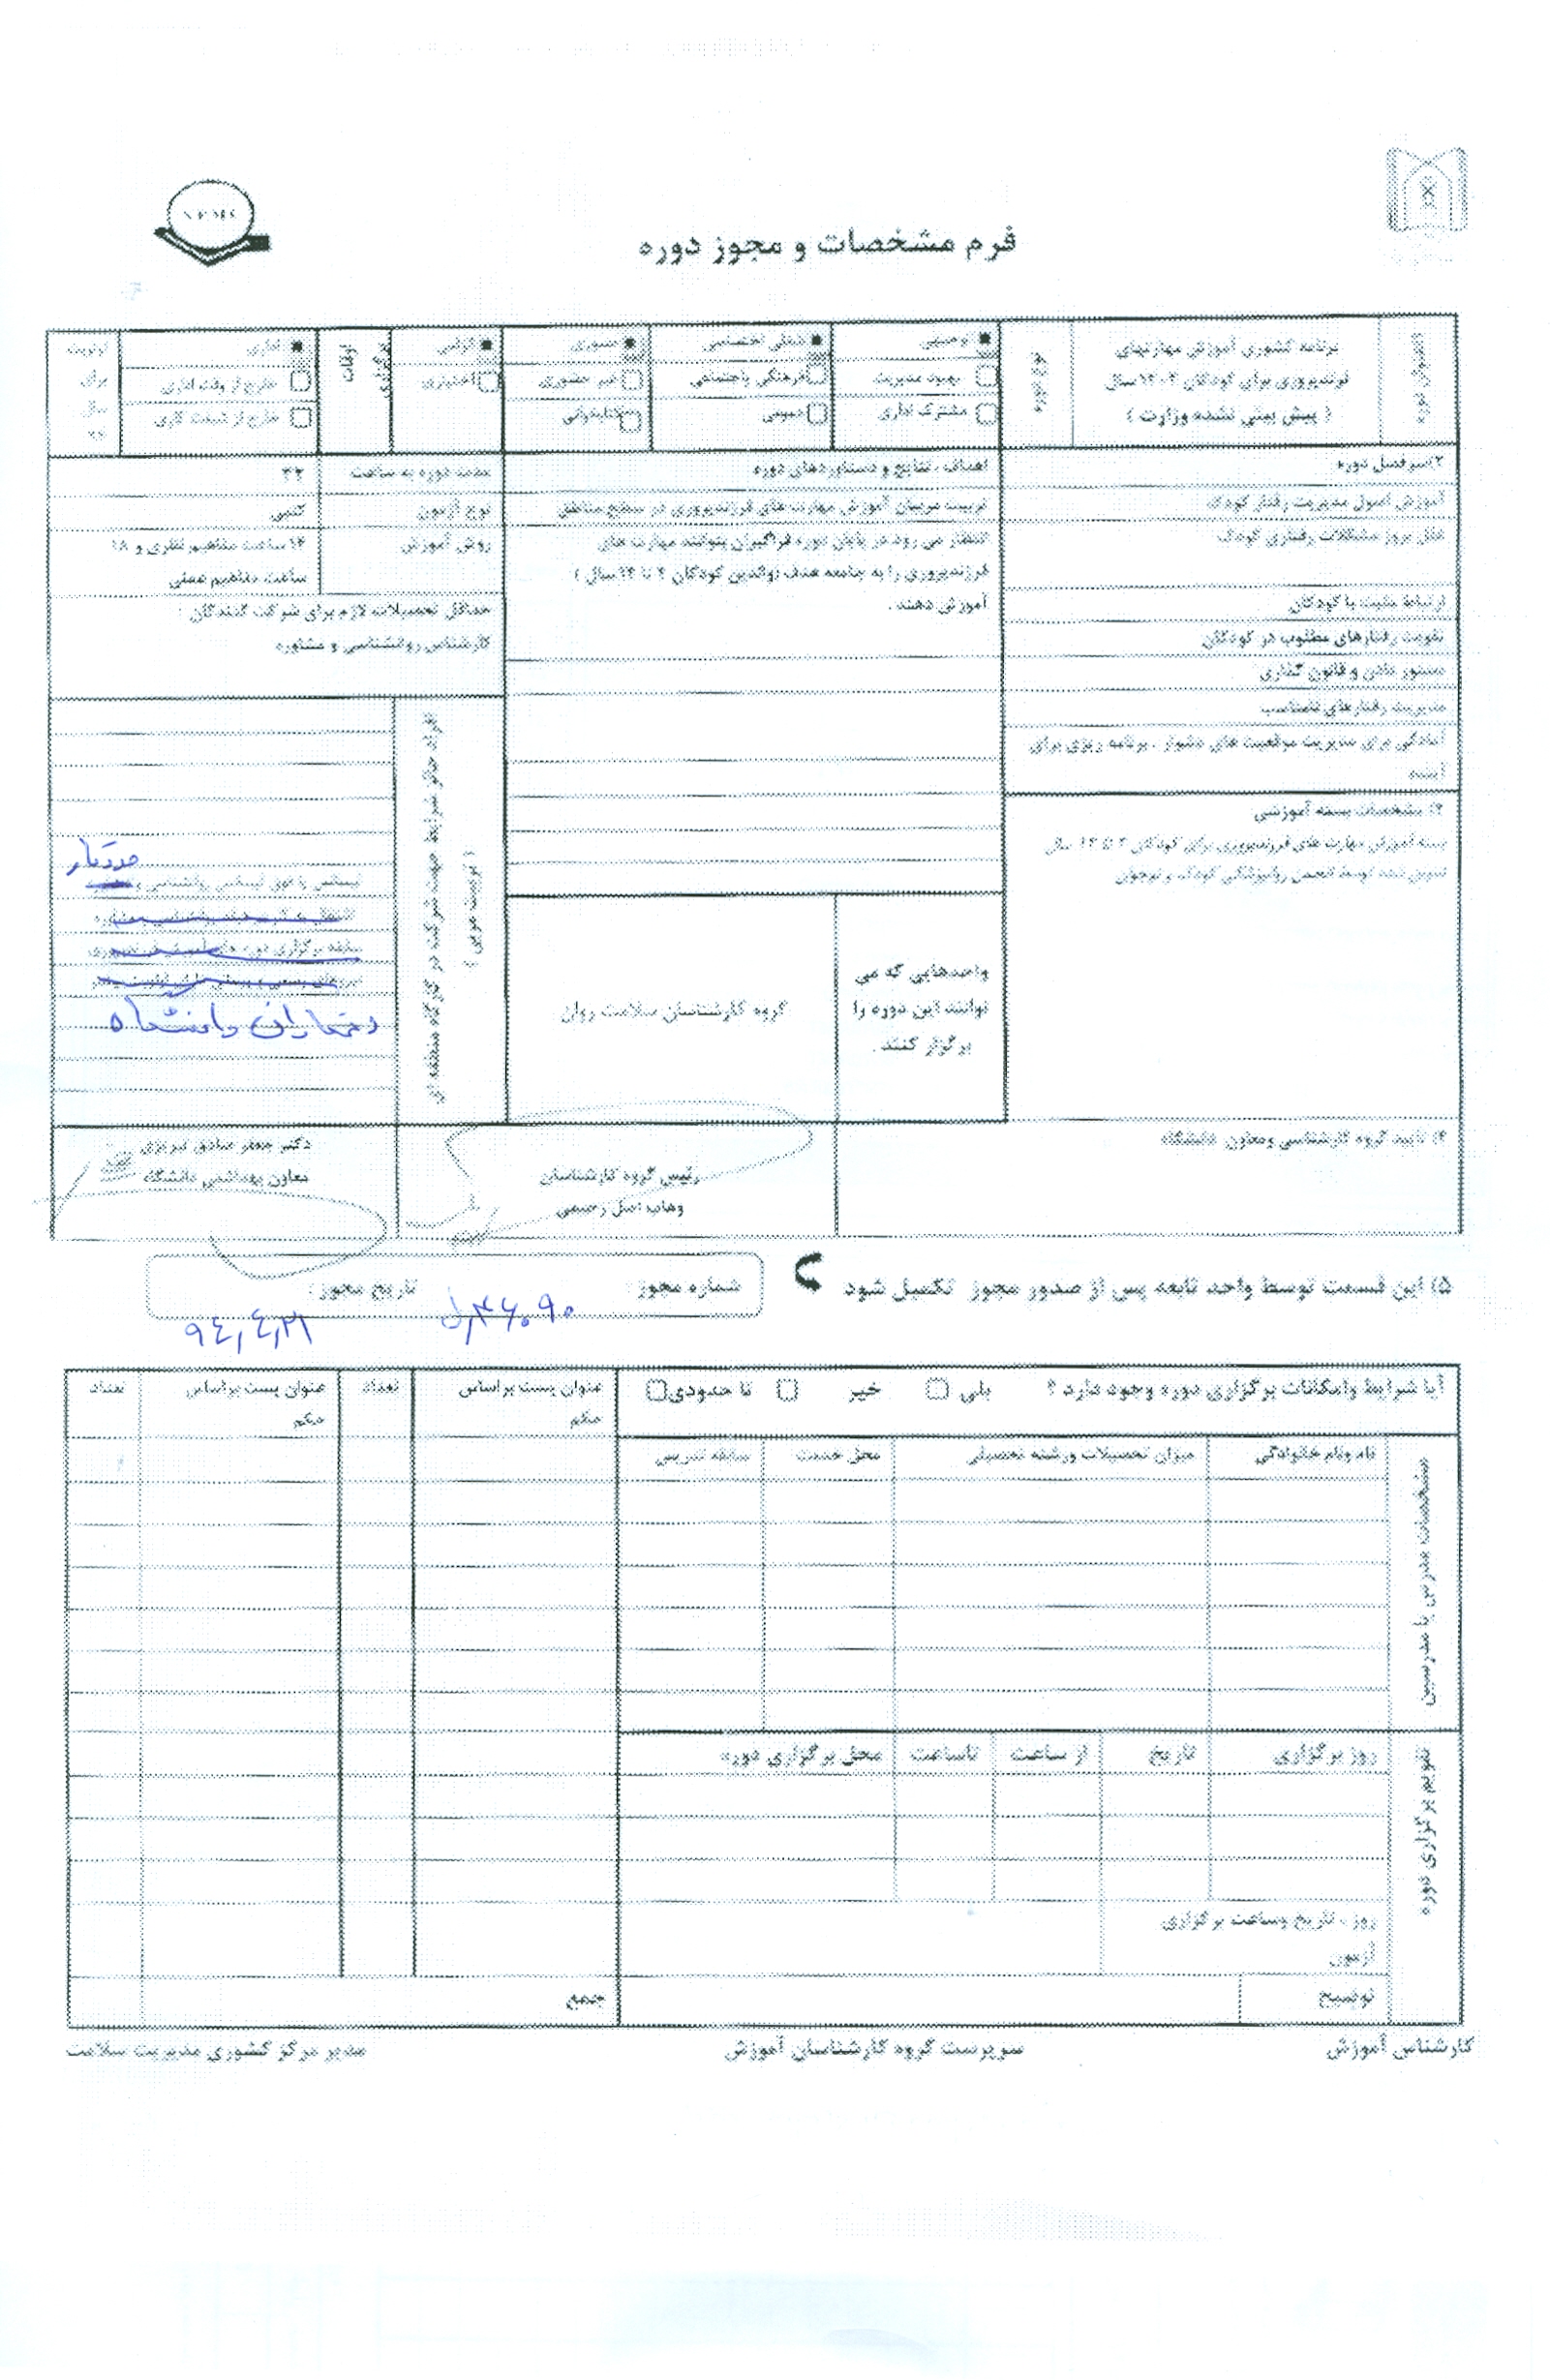 NPMC
فرم مشخصات و مجوز دوره
برنامه کشوری آموزش مهارتهای
فرزندپروری برای کودکان ۲-۱۲ سال
( پیش بینی نشده وزارت )
نوع دوره
توجیهی
بهبود مدیریت
مشترک اداری
شغلی اختصاصی
فرهنگی یا اجتماعی
عمومی
حضوری
غیر حضوری
کتابخوانی
الزامی
اختیاری
اوقات
برگزاری
اداری
خارج از وقت اداری
خارج از شیفت کاری
اولویت
برای
سال
۲)سرفصل دوره
آموزش اصول مدیریت رفتار کودک
علل بروز مشکلات رفتاری کودک
ارتباط مثبت با کودکان
تقویت رفتارهای مطلوب در کودکان
دستور دادن و قانون گذاری
مدیریت رفتارهای نامناسب
آمادگی برای مدیریت موقعیت های دشوار ، برنامه ریزی برای
آینده
اهداف ، نتایج و دستاوردهای دوره
تربیت مربیان آموزش مهارت های فرزندپروری در سطح مناطق
انتظار می رود در پایان دوره فراگیران بتوانند مهارت های
فرزندپروری را به جامعه هدف (والدین کودکان ۲ تا ۱۲ سال )
آموزش دهند .
مدت دوره به ساعت
نوع آزمون
کتبی
روش آموزش
۱۴ ساعت مفاهیم نظری و ۱۸
ساعت مفاهیم عملی
حداقل تحصیلات لازم برای شرکت کنندگان :
کارشناس روانشناسی و مشاوره
۳) مشخصات بسته آموزشی
بسته آموزش مهارت های فرزندپروری برای کودکان ۲ تا ۱۲ سال
تدوین شده توسط انجمن روانپزشکی کودک و نوجوان
واحدهایی که می
توانند این دوره را
برگزار کنند .
گروه کارشناسان سلامت روان
افراد حائز شرایط جهت شرکت در کارگاه منطقه ای
( تربیت مربی )
مددکار
لیسانس یا فوق لیسانس روانشناسی و
دانشگاه
۴) تایید گروه کارشناسی ومعاون دانشگاه
رئیس گروه کارشناسان
وهاب اصل رحیمی
دکتر جعفر صادق تبریزی
معاون بهداشتی دانشگاه
۵) این قسمت توسط واحد تابعه پس از صدور مجوز تکمیل شود
شماره مجوز :
تاریخ مجوز :
۹۴,۴,۲۱
آیا شرایط وامکانات برگزاری دوره وجود دارد ؟ بلی خیر تا حدودی
عنوان پست براساس
حکم
تعداد
عنوان پست براساس
حکم
تعداد
مشخصات مدرس یا مدرسین
نام ونام خانوادگی
میزان تحصیلات ورشته تحصیلی
محل خدمت
سابقه تدریس
تقویم برگزاری دوره
روز برگزاری
تاریخ
از ساعت
تاساعت
محل برگزاری دوره
روز ، تاریخ وساعت برگزاری
آزمون
توضیح
جمع
کارشناس آموزش
سرپرست گروه کارشناسان آموزش
مدیر مرکز کشوری مدیریت سلامت